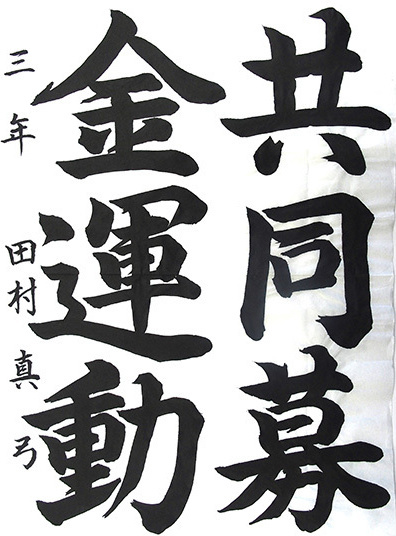 共同募
金運動
三年 田村真弓